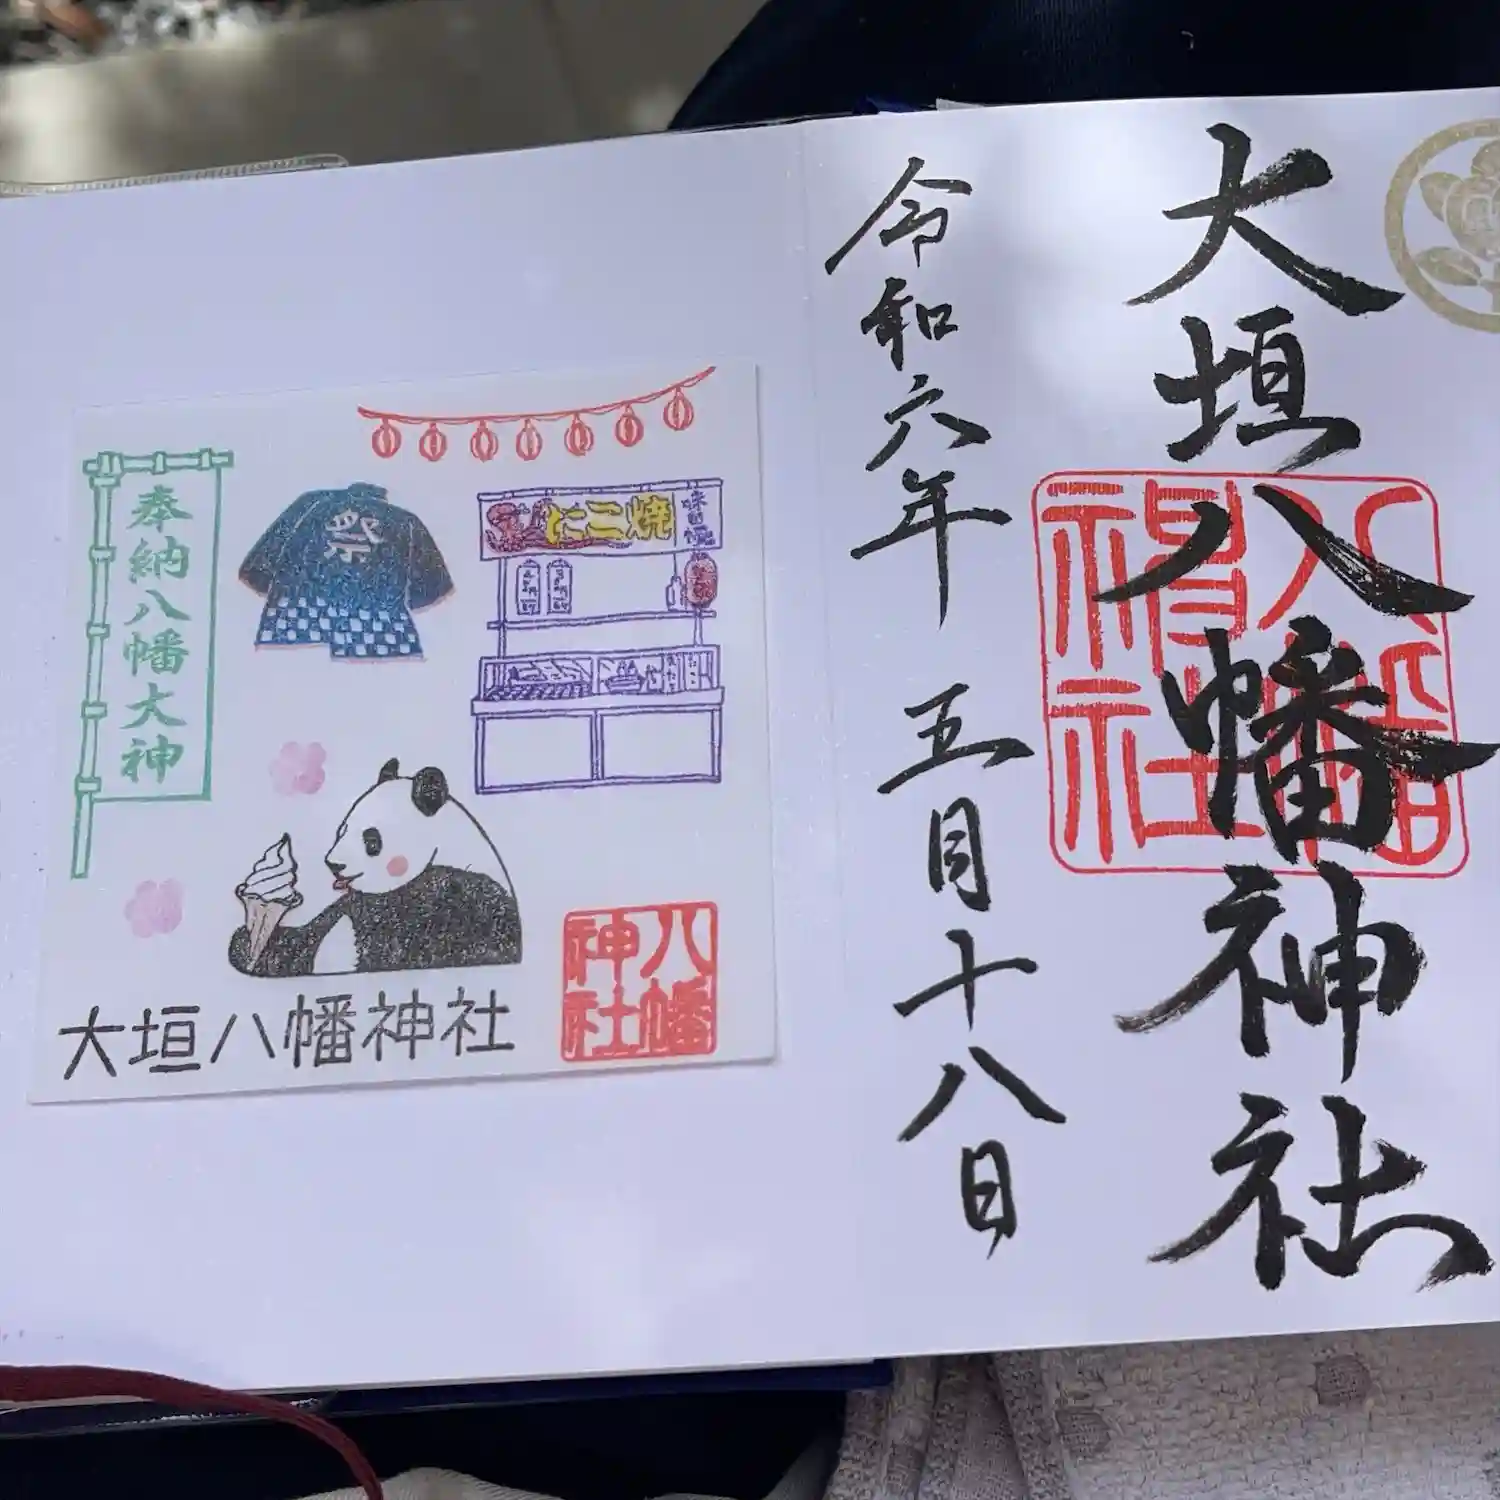 大垣八幡神社
八幡神社
令和六年 五月十八日
奉納八幡大神
祭
たこ焼
味自慢
大垣八幡神社
八幡
神社